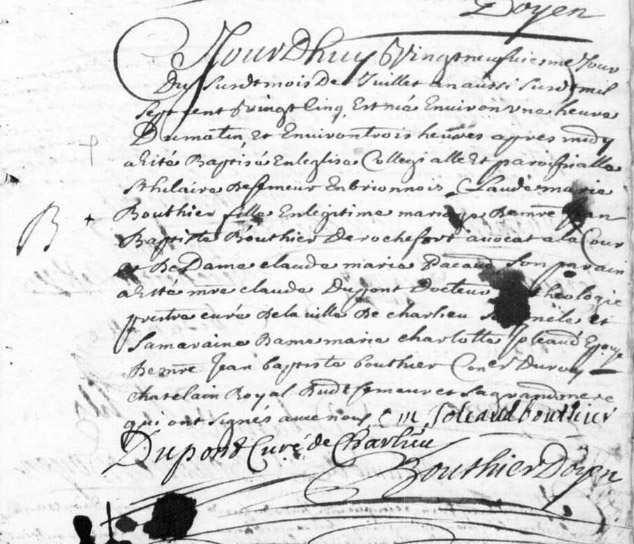 Doyen
Jourdhuy & vingtneufviesme Jour
Du Susdt mois De Juillet an aussi Susdt mil
Sept cent & vingt Cinq, Est née Environ une heure
Du matin, et Environ trois heures apres midy
a Esté Baptisée En leglise Collegialle Et paroissialle
St hilaire De Semeur En brionnois, Claude marie
B + Bouthier fille En legitime mariage De mre Jean
Baptiste Bouthier De rochefort avocat a la Cour
et De Dame claude marie Son parain
a Esté mre claude Dupont Docteur theologie
prestre curé De la ville De charlieu et
Samaraine Dame marie charlotte Epouse
De mre Jean baptiste bouthier Coner Du roy
chatelain Royal Dudt Semeur et Sa grandmere
qui ont Signés avec nous C m bouthier
Dupont Curé de Charlieu
Bouthier Doyen